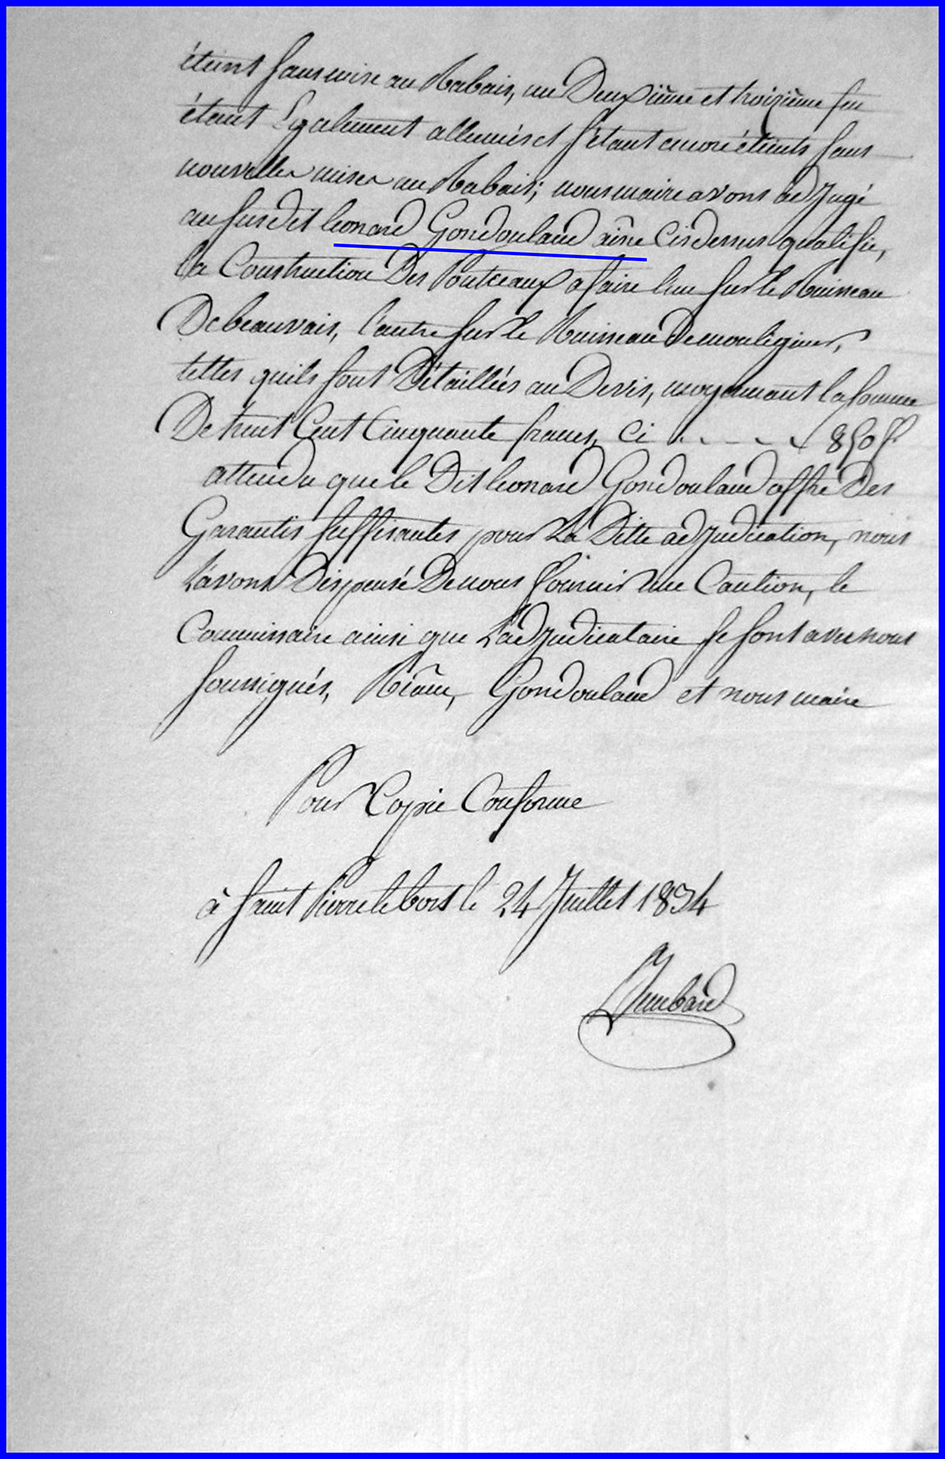 éteint sans mise au Rabais, un Deuxième et troizième feu
étant Egalement allumés et s'étant encore éteints sans
nouvelles mises au Rabais; nous maire avons adjugé
au susdit leonard Gondouland aîne Cidessus qualifié,
la Construction Des Ponteaux a faire l'un sur le Ruisseau
De beauvais, l'autre sur le Ruisseau De
telles quils sont Détaillées au Devis, moyennant la somme
De huit Cent Cinquante francs, Ci . . - - - 850 f
attendu que le Dit leonard Gondouland offre Des
Garantis suffisantes pour La Ditte adjudication, nous
L'avons Dispensé De nous fournir une Caution, le
Commissaire ainsi que L'adjudicataire se sont avec nous
soussignés, Gondouland et nous maire
Pour Copie Conforme
à Saint Pierre le bost le 24 Juillet 1834